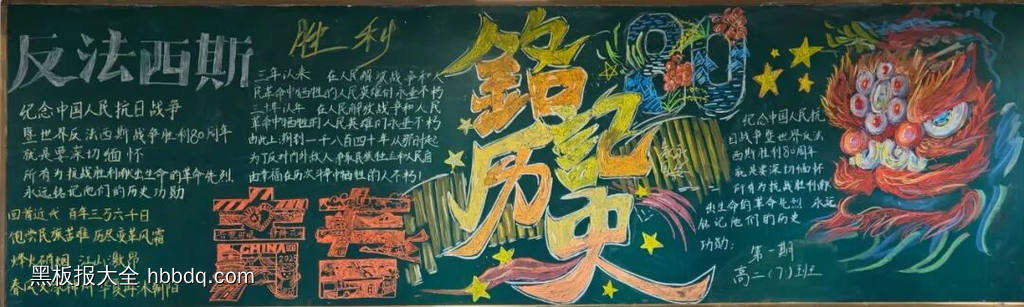 反法西斯
胜利
纪念中国人民抗日战争
暨世界反法西斯战争胜利80周年
就是要深切缅怀
所有为抗战胜利献出生命的革命先烈
永远铭记他们的历史功勋
回首近代 百年三万六千日
饱尝民族苦难 历尽变革风霜
烽火硝烟 江山激昂
三年以来 在人民解放战争和人
民革命中牺牲的人民英雄们永垂不朽
三十年以来 在人民解放战争和人民
革命中牺牲的人民英雄们永垂不朽
由此上溯到一千八百四十年从那时起
为了反对内外敌人 争取民族独立和人民自
由幸福在历次斗争中牺牲的人不朽!
CHINA
铭記
历史
80
纪念中国人民抗
日战争暨世界反法
西斯胜利80周年
就是要深切缅怀
所有为抗战胜利献
出生命的革命先烈 永远
铭记他们的历史
功勋:
第一期
高二(7)班
黑板报大全 hbbdq.com